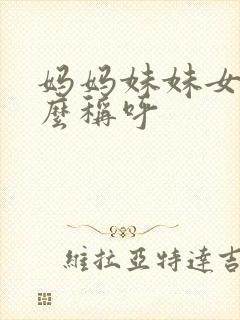 妈妈妹妹女
麼稱呼
維拉亞特達吉